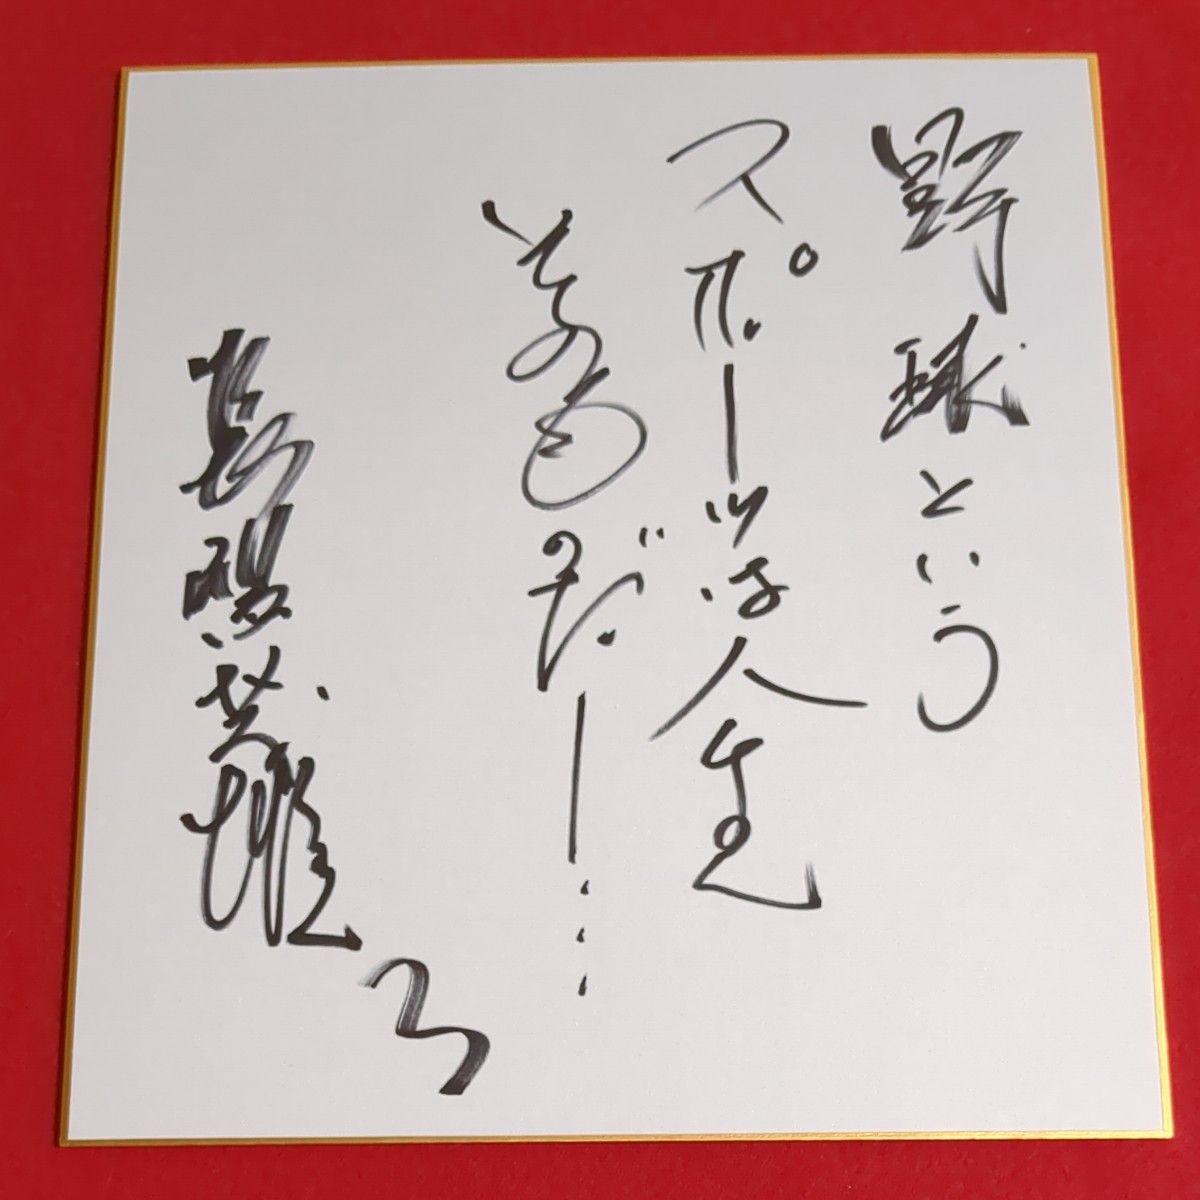 野球という
スポーツは人生
そのものだー…
長嶋茂雄
3